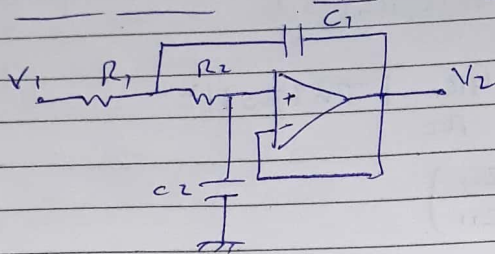 C1
V1 R1 R2 V2
+
-
C2